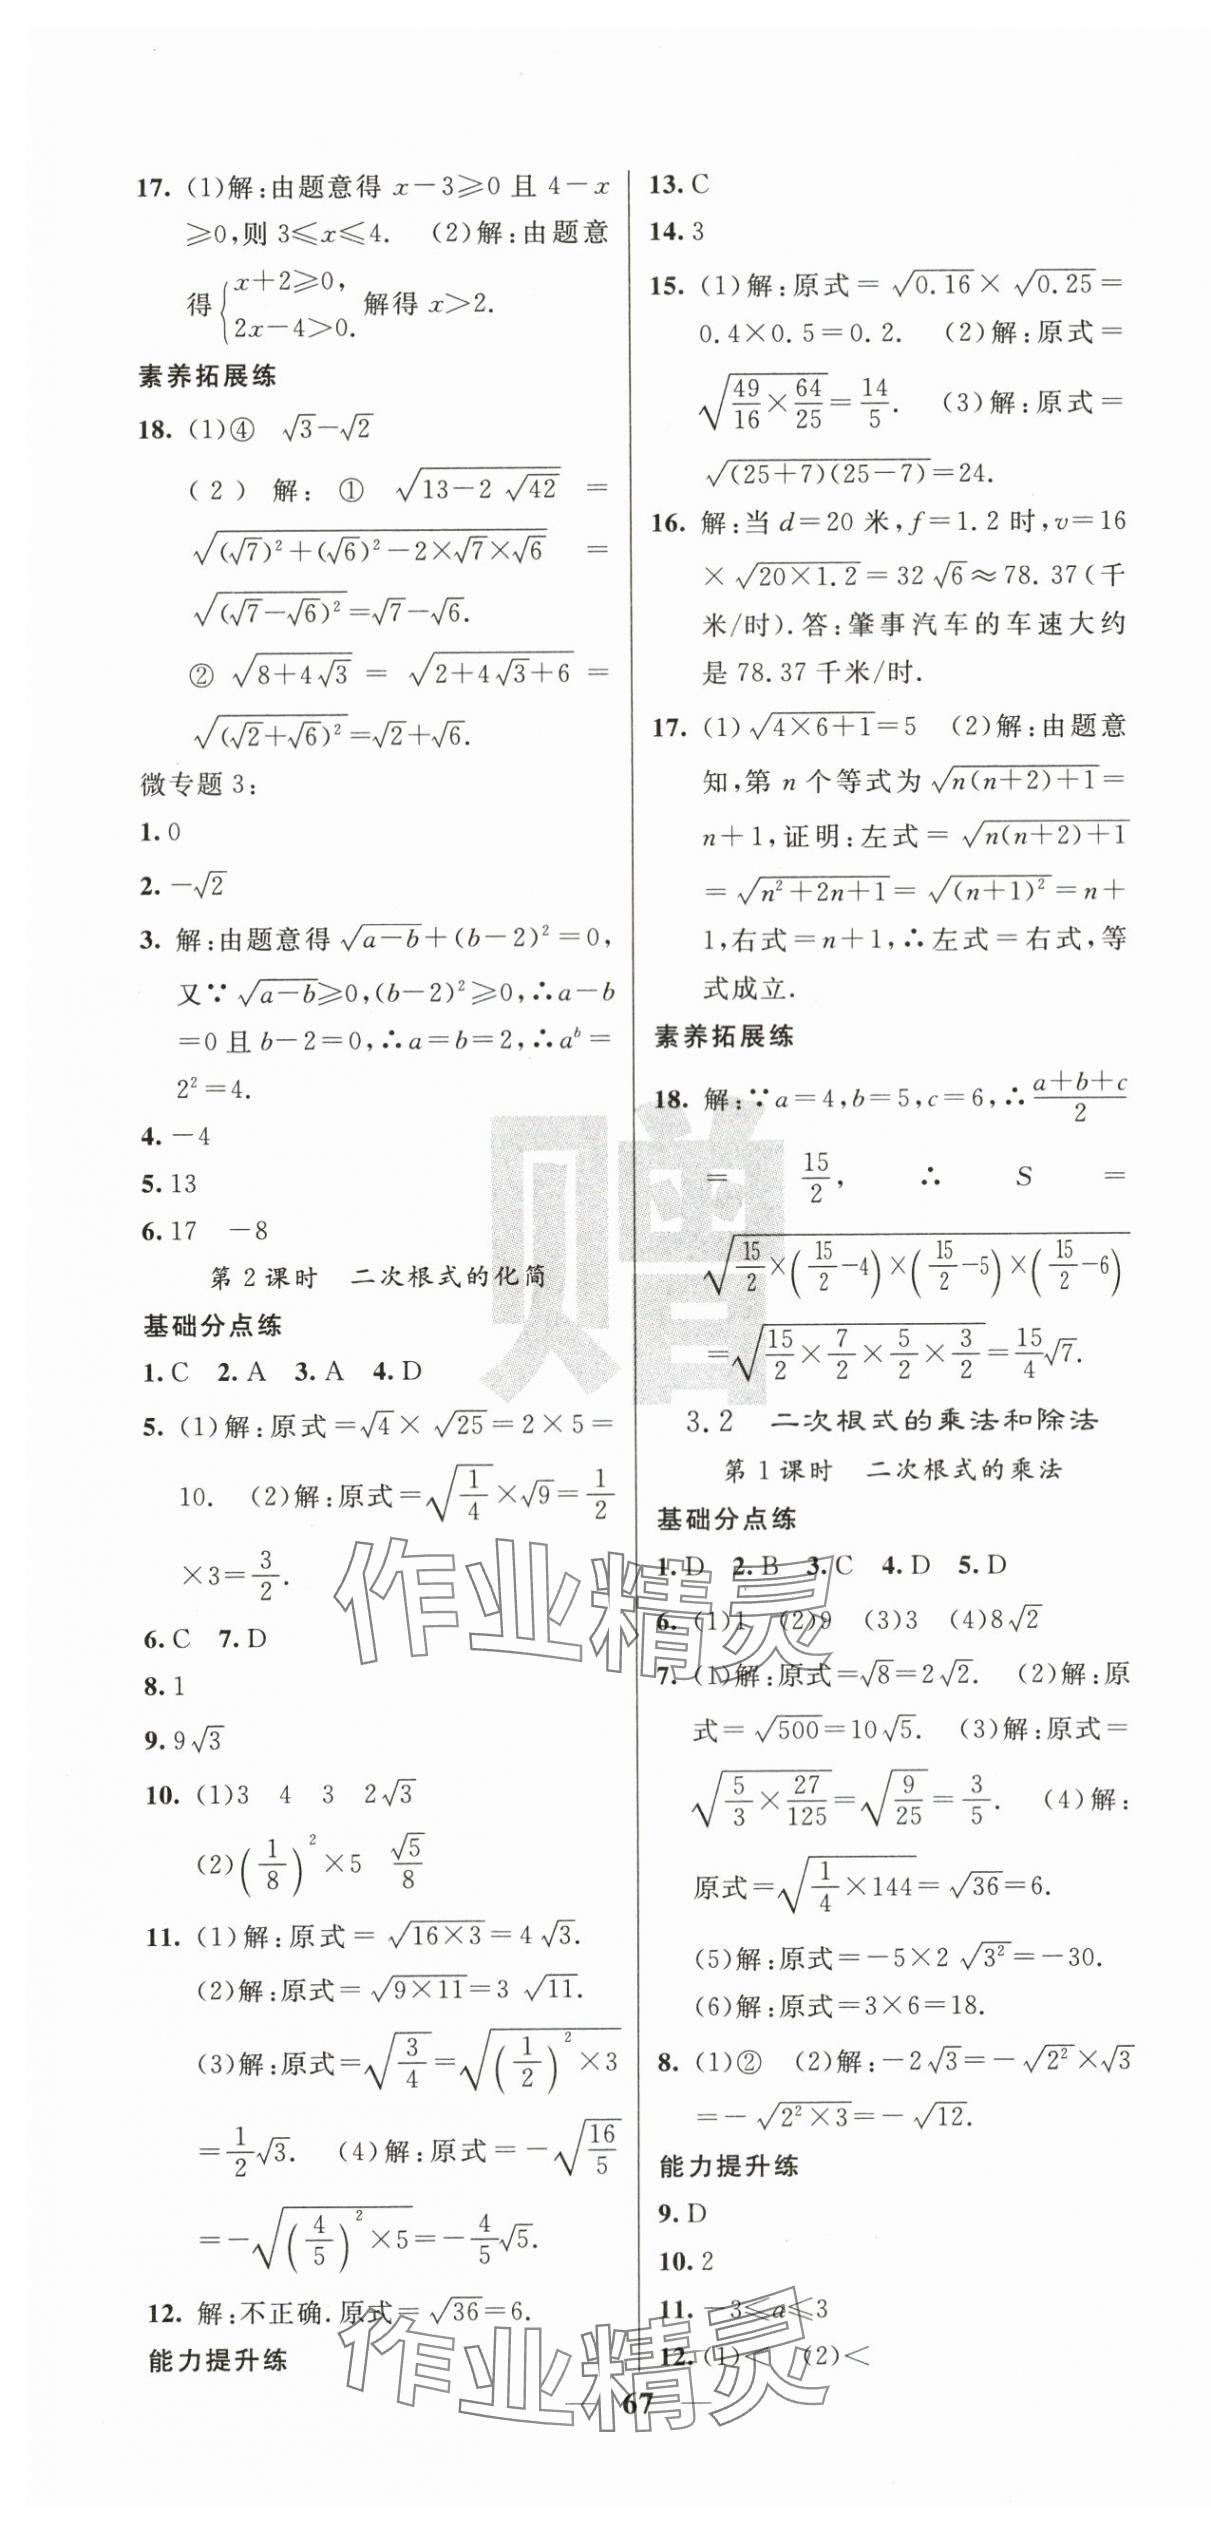 17. (1)解:由题意得 x－3≥0 且 4－x
≥0,则 3≤x≤4. (2)解:由题意
得{x＋2≥0, 2x－4＞0. 解得 x＞2.
素养拓展练
18. (1)④ √3－√2
(2) 解: ① √(13－2√42) ＝
√((√7)²＋(√6)²－2×√7×√6) ＝
√((√7－√6)²)＝√7－√6.
② √(8＋4√3) ＝ √(2＋4√3＋6) ＝
√((√2＋√6)²)＝√2＋√6.
微专题 3:
1. 0
2. －√2
3. 解:由题意得√(a－b)＋(b－2)²＝0,
又∵√(a－b)≥0,(b－2)²≥0,∴a－b
＝0 且 b－2＝0,∴a＝b＝2,∴aᵇ＝
2²＝4.
4. －4
5. 13
6. 17 －8
第 2 课时 二次根式的化简
基础分点练
1. C 2. A 3. A 4. D
5. (1)解:原式＝√4×√25＝2×5＝
10. (2)解:原式＝√(1/4)×√9＝1/2
×3＝3/2.
6. C 7. D
8. 1
9. 9√3
10. (1)3 4 3 2√3
(2)(1/8)²×5 √5/8
11. (1)解:原式＝√(16×3)＝4√3.
(2)解:原式＝√(9×11)＝3√11.
(3)解:原式＝√(3/4)＝√((1/2)²×3)
＝1/2√3. (4)解:原式＝－√(16/5)
＝－√((4/5)²×5)＝－4/5√5.
12. 解:不正确.原式＝√36＝6.
能力提升练
13. C
14. 3
15. (1)解:原式＝√0.16×√0.25＝
0.4×0.5＝0.2. (2)解:原式＝
√(49/16×64/25)＝14/5. (3)解:原式＝
√((25＋7)(25－7))＝24.
16. 解:当 d＝20 米,f＝1.2 时,v＝16
×√(20×1.2)＝32√6≈78.37(千
米/时).答:肇事汽车的车速大约
是 78.37 千米/时.
17. (1)√(4×6＋1)＝5 (2)解:由题意
知,第 n 个等式为√(n(n＋2)＋1)＝
n＋1,证明:左式＝√(n(n＋2)＋1)
＝√(n²＋2n＋1)＝√((n＋1)²)＝n＋
1,右式＝n＋1,∴左式＝右式,等
式成立.
素养拓展练
18. 解:∵a＝4,b＝5,c＝6,∴(a＋b＋c)/2
＝ 15/2, ∴ S ＝
√(15/2×(15/2－4)×(15/2－5)×(15/2－6))
＝√(15/2×7/2×5/2×3/2)＝15/4√7.
3.2 二次根式的乘法和除法
第 1 课时 二次根式的乘法
基础分点练
1. D 2. B 3. C 4. D 5. D
6. (1)1 (2)9 (3)3 (4)8√2
7. (1)解:原式＝√8＝2√2. (2)解:原
式＝√500＝10√5. (3)解:原式＝
√(5/3×27/125)＝√(9/25)＝3/5. (4)解:
原式＝√(1/4×144)＝√36＝6.
(5)解:原式＝－5×2√(3²)＝－30.
(6)解:原式＝3×6＝18.
8. (1)② (2)解:－2√3＝－√(2²)×√3
＝－√(2²×3)＝－√12.
能力提升练
9. D
10. 2
11. －3≤a≤3
12. (1)＜ (2)＜
67
赠
作业精灵
作业精灵